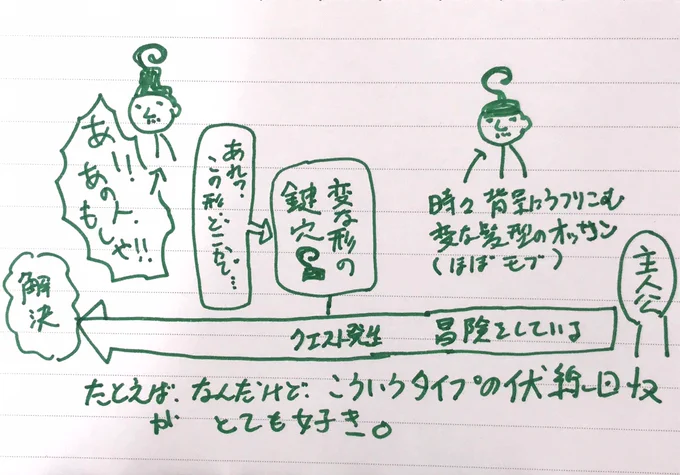 主人公
時々背景にうつりこむ
変な髪型のオッサン
(ほぼモブ)
冒険をしている
クエスト発生
変な形の
鍵穴
あれ?
この形、どこかで…
あ!!
あの人、
もしや!!
解決
たとえば、なんだけど、こういうタイプの伏線回収
が とても好き。